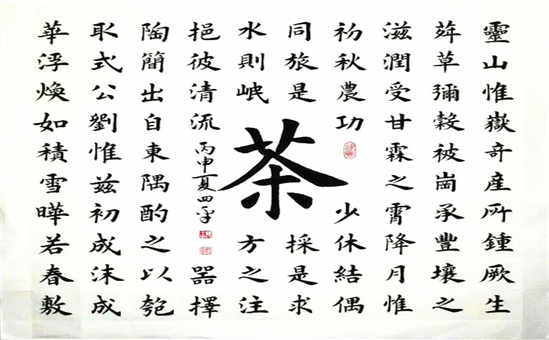 靈山惟嶽奇產所鍾厥生
荈草彌穀被崗承豐壤之
滋潤受甘霖之霄降月惟
初秋農功少休結偶
同旅是採是求
水則岷方之注
挹彼清流器擇
陶簡出自東隅酌之以匏
取式公劉惟茲初成沫成
華浮煥如積雪曄若春敷
茶
丙申夏四平